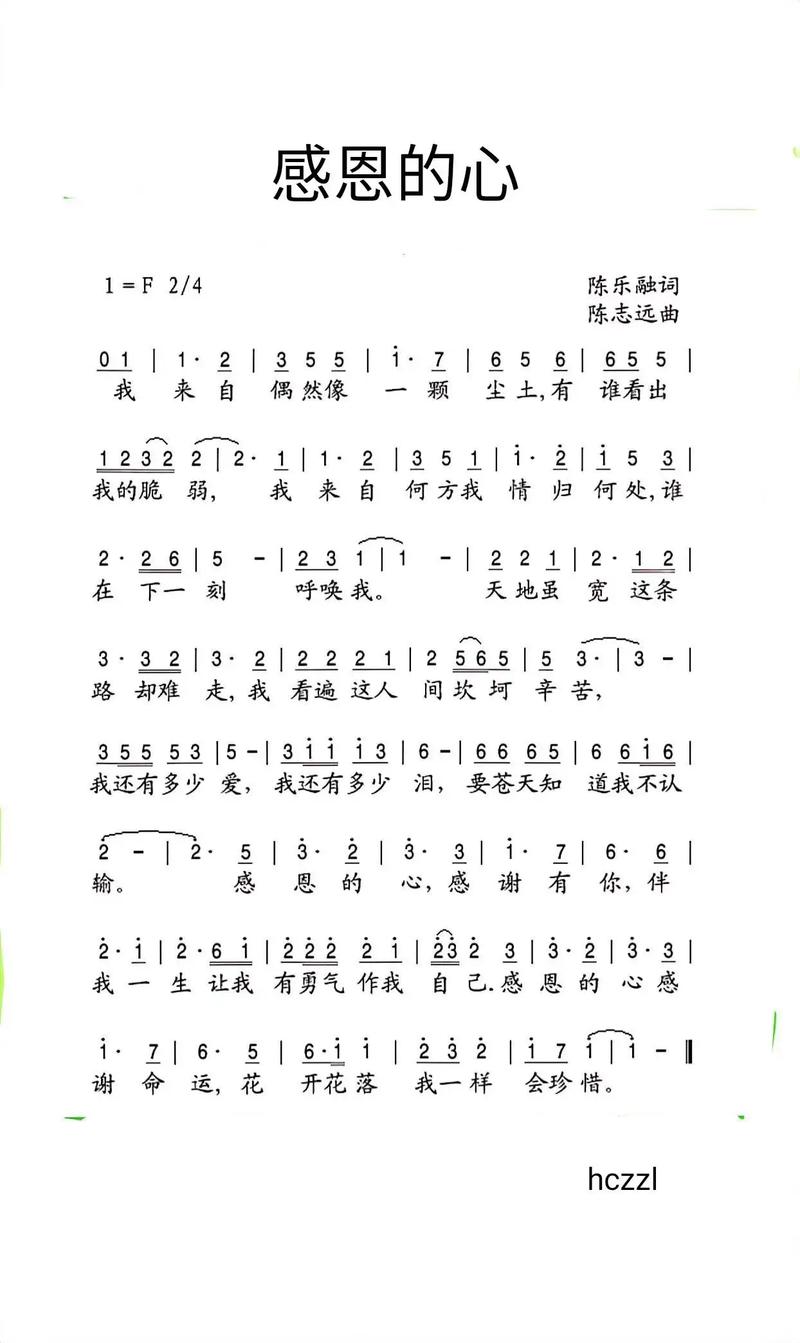 感恩的心
1=F 2/4
陈乐融词
陈志远曲
0 1 | 1· 2 | 3 5 5 | i· 7 | 6 5 6 | 6 5 5 |
我 来 自 偶然像 一 颗 尘土,有 谁看出
1 2 3 2 2 | 2· 1 | 1· 2 | 3 5 1 | i· 2̇ | i 5 3 |
我的脆 弱, 我 来 自 何方我 情 归 何处,谁
2· 2 6 | 5 - | 2 3 1 | 1 - | 2 2 1 | 2· 1 2 |
在 下一 刻 呼唤我。 天地虽 宽 这条
3· 3 2 | 3· 2 | 2 2 2 1 | 2 5 6 5 | 5 3· | 3 - |
路 却难 走,我 看遍这人 间坎坷 辛苦,
3 5 5 5 3 | 5 - | 3 i i i 3 | 6 - | 6 6 6 5 | 6 6 i 6 |
我还有多少 爱, 我还有多少 泪, 要苍天知 道我不认
2̇ - | 2̇· 5 | 3̇· 2̇ | 3̇· 3 | i· 7 | 6· 6 |
输。 感 恩 的 心,感 谢 有 你,伴
2̇· i | 2̇· 6 i | 2̇ 2̇ 2̇ 2̇ i | 2̇3̇ 2̇ 3 | 3̇· 2̇ | 3̇· 3 |
我 一 生 让我 有勇气 作我 自 己.感 恩 的 心 感
i· 7 | 6· 5 | 6· i i | 2̇ 3̇ 2̇ | i 7 i | i - ‖
谢 命 运,花 开花落 我一样 会珍惜。
hczzl